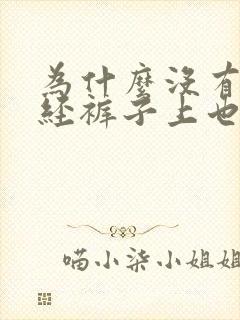 為什麼沒有
經褲子上也
喵小柒小姐姐